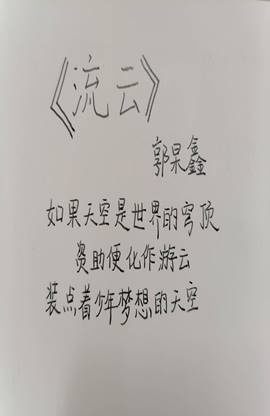 《流云》
郭杲鑫
如果天空是世界的穹顶
资助便化作游云
装点着少年梦想的天空